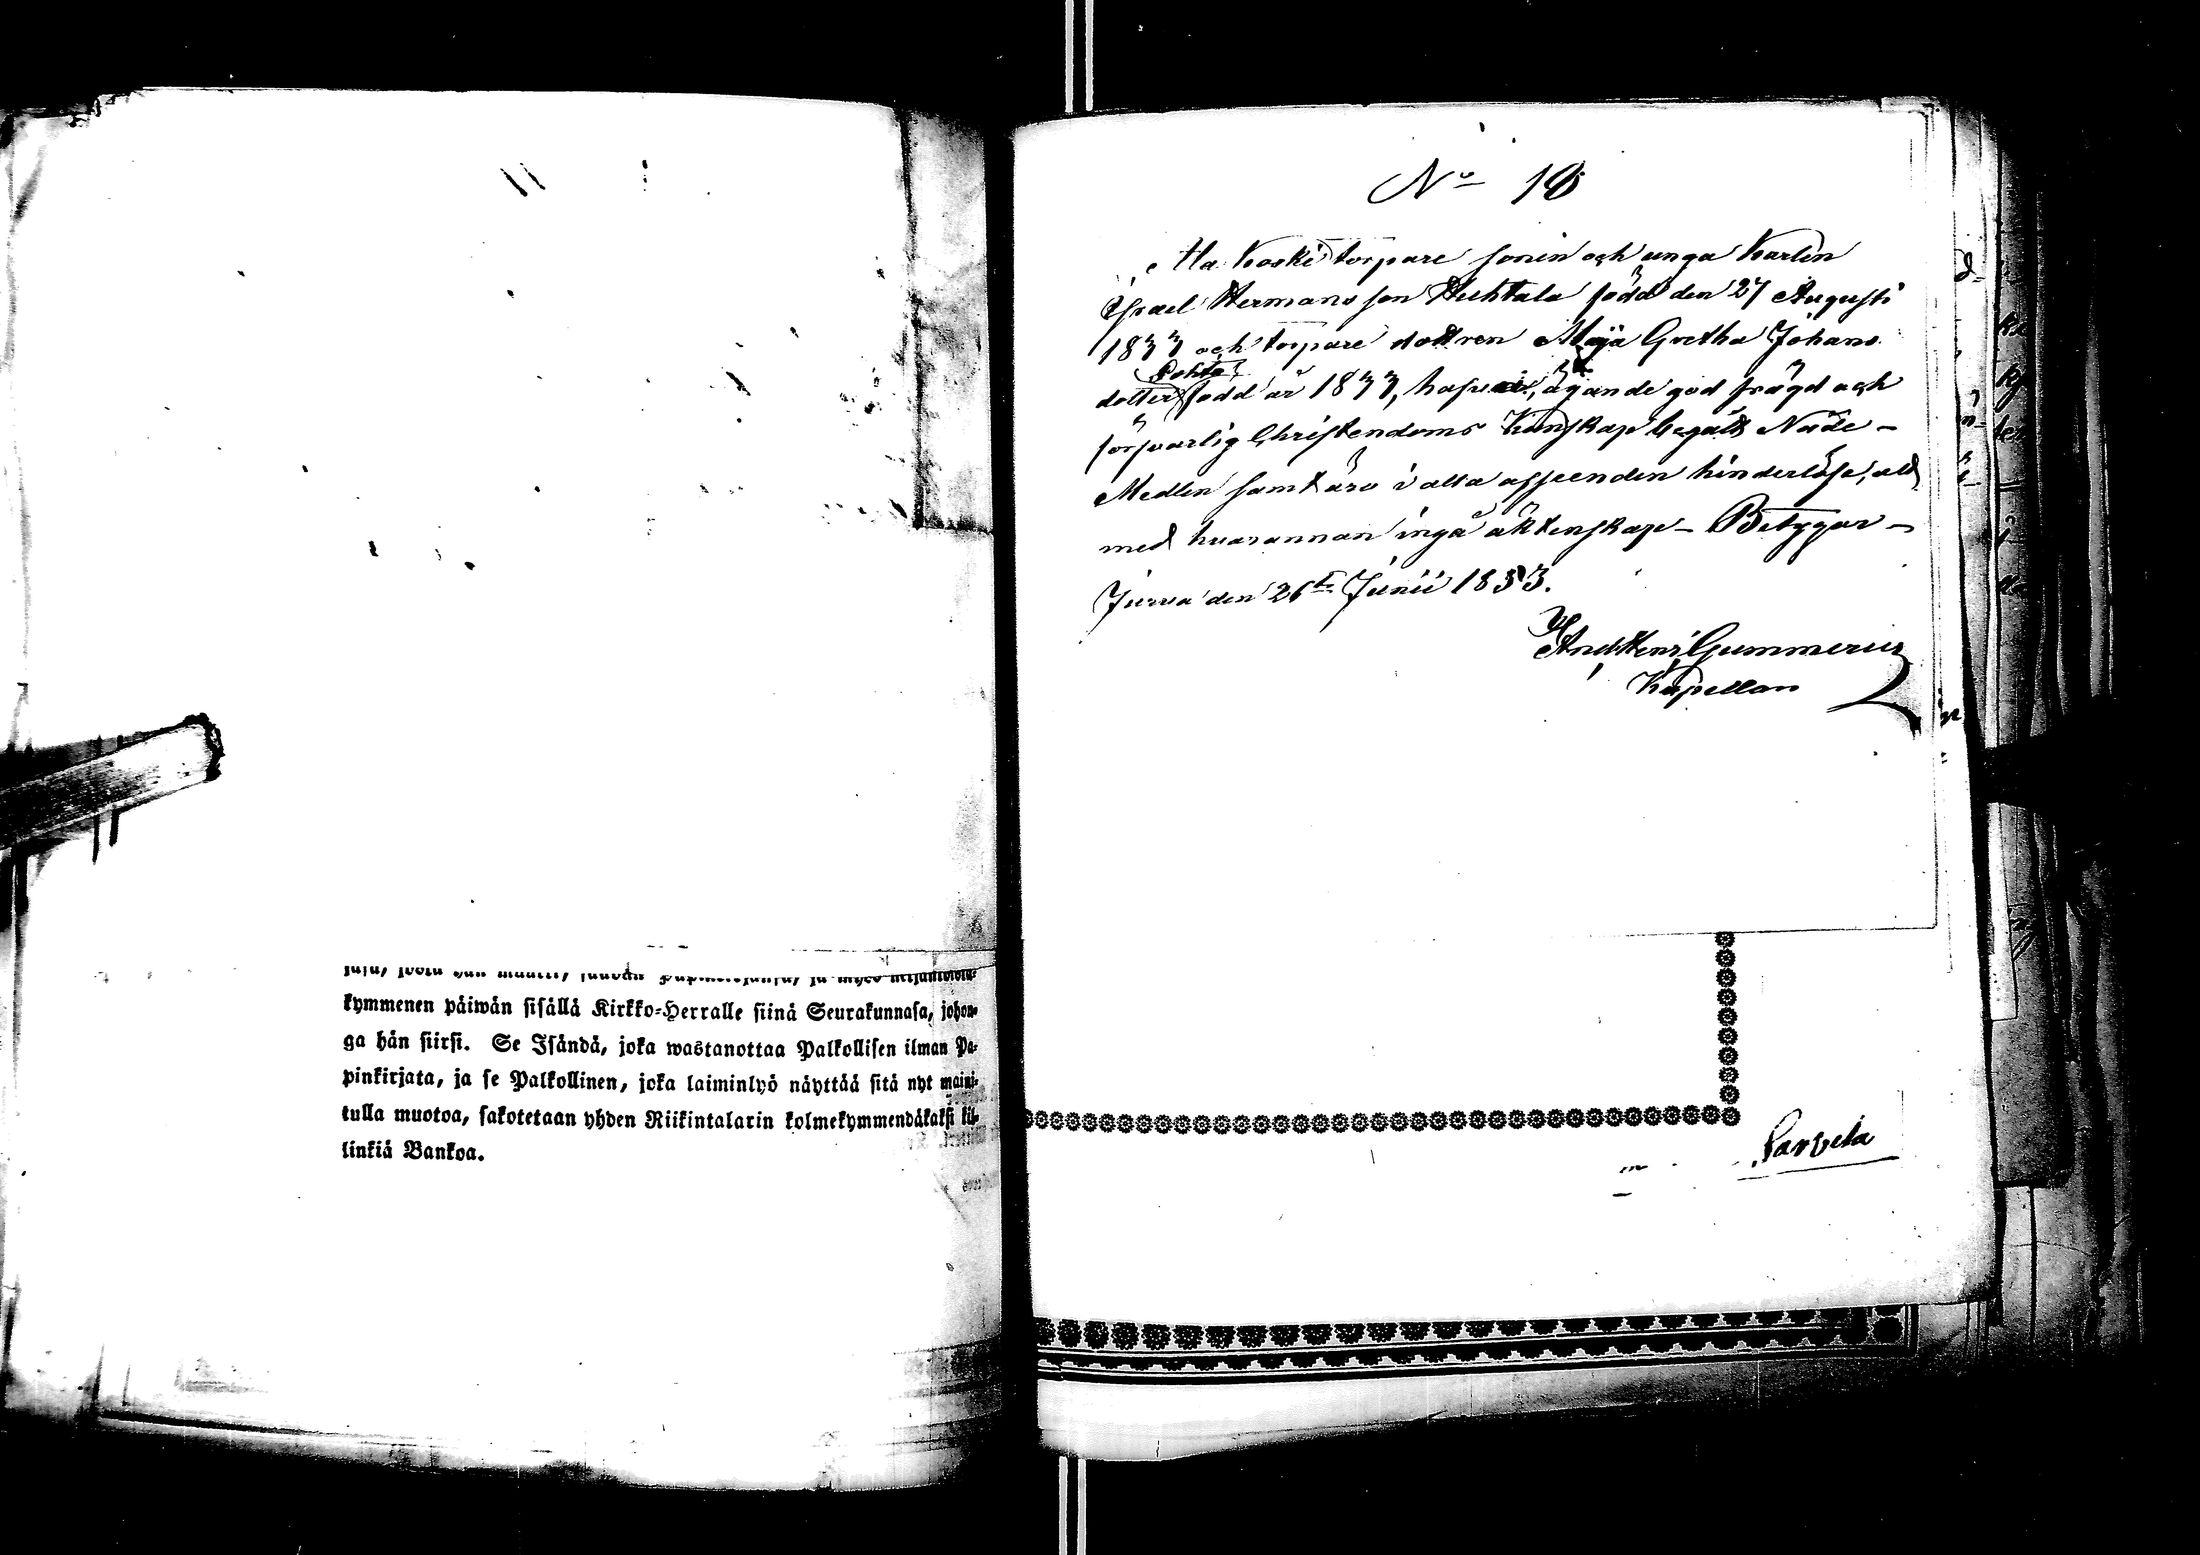 kymmenen päiwän sisällä Kirkko-Herralle siinä Seurakunnasa, johon-
ga hän siirsi. Se Isändä, joka wastanottaa Palkollisen ilman Pa-
pinkirjata, ja se Palkollinen, joka laiminlyö näyttää sitä nyt maini-
tulla muotoa, sakotetaan yhden Riikintalarin kolmekymmendäkaksi kil-
linkiä Bankoa.
No 18
Ala Koski torpare sonen och unga Karlen
Israel Hermansson Huhtala född den 27 Augusti
1833 och torpare dottren Maja Gretha Johans
Pohto
dotter född år 1833, hafva, ägande god frägd och
försvarlig Christendoms Kunskap begått Nåde-
Medlen samt äro i alla afseenden hinderlösa, att
med hvarannan ingå äktenskap - Betygar -
Jurva den 26te Junii 1853.
And Henr Gummerus
Kapellan
Sarvela